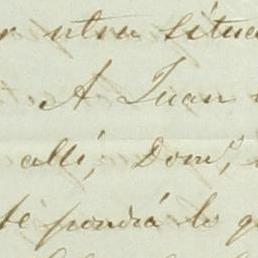 r otra situa
A Juan
allí, Domº,
te pondrá lo q